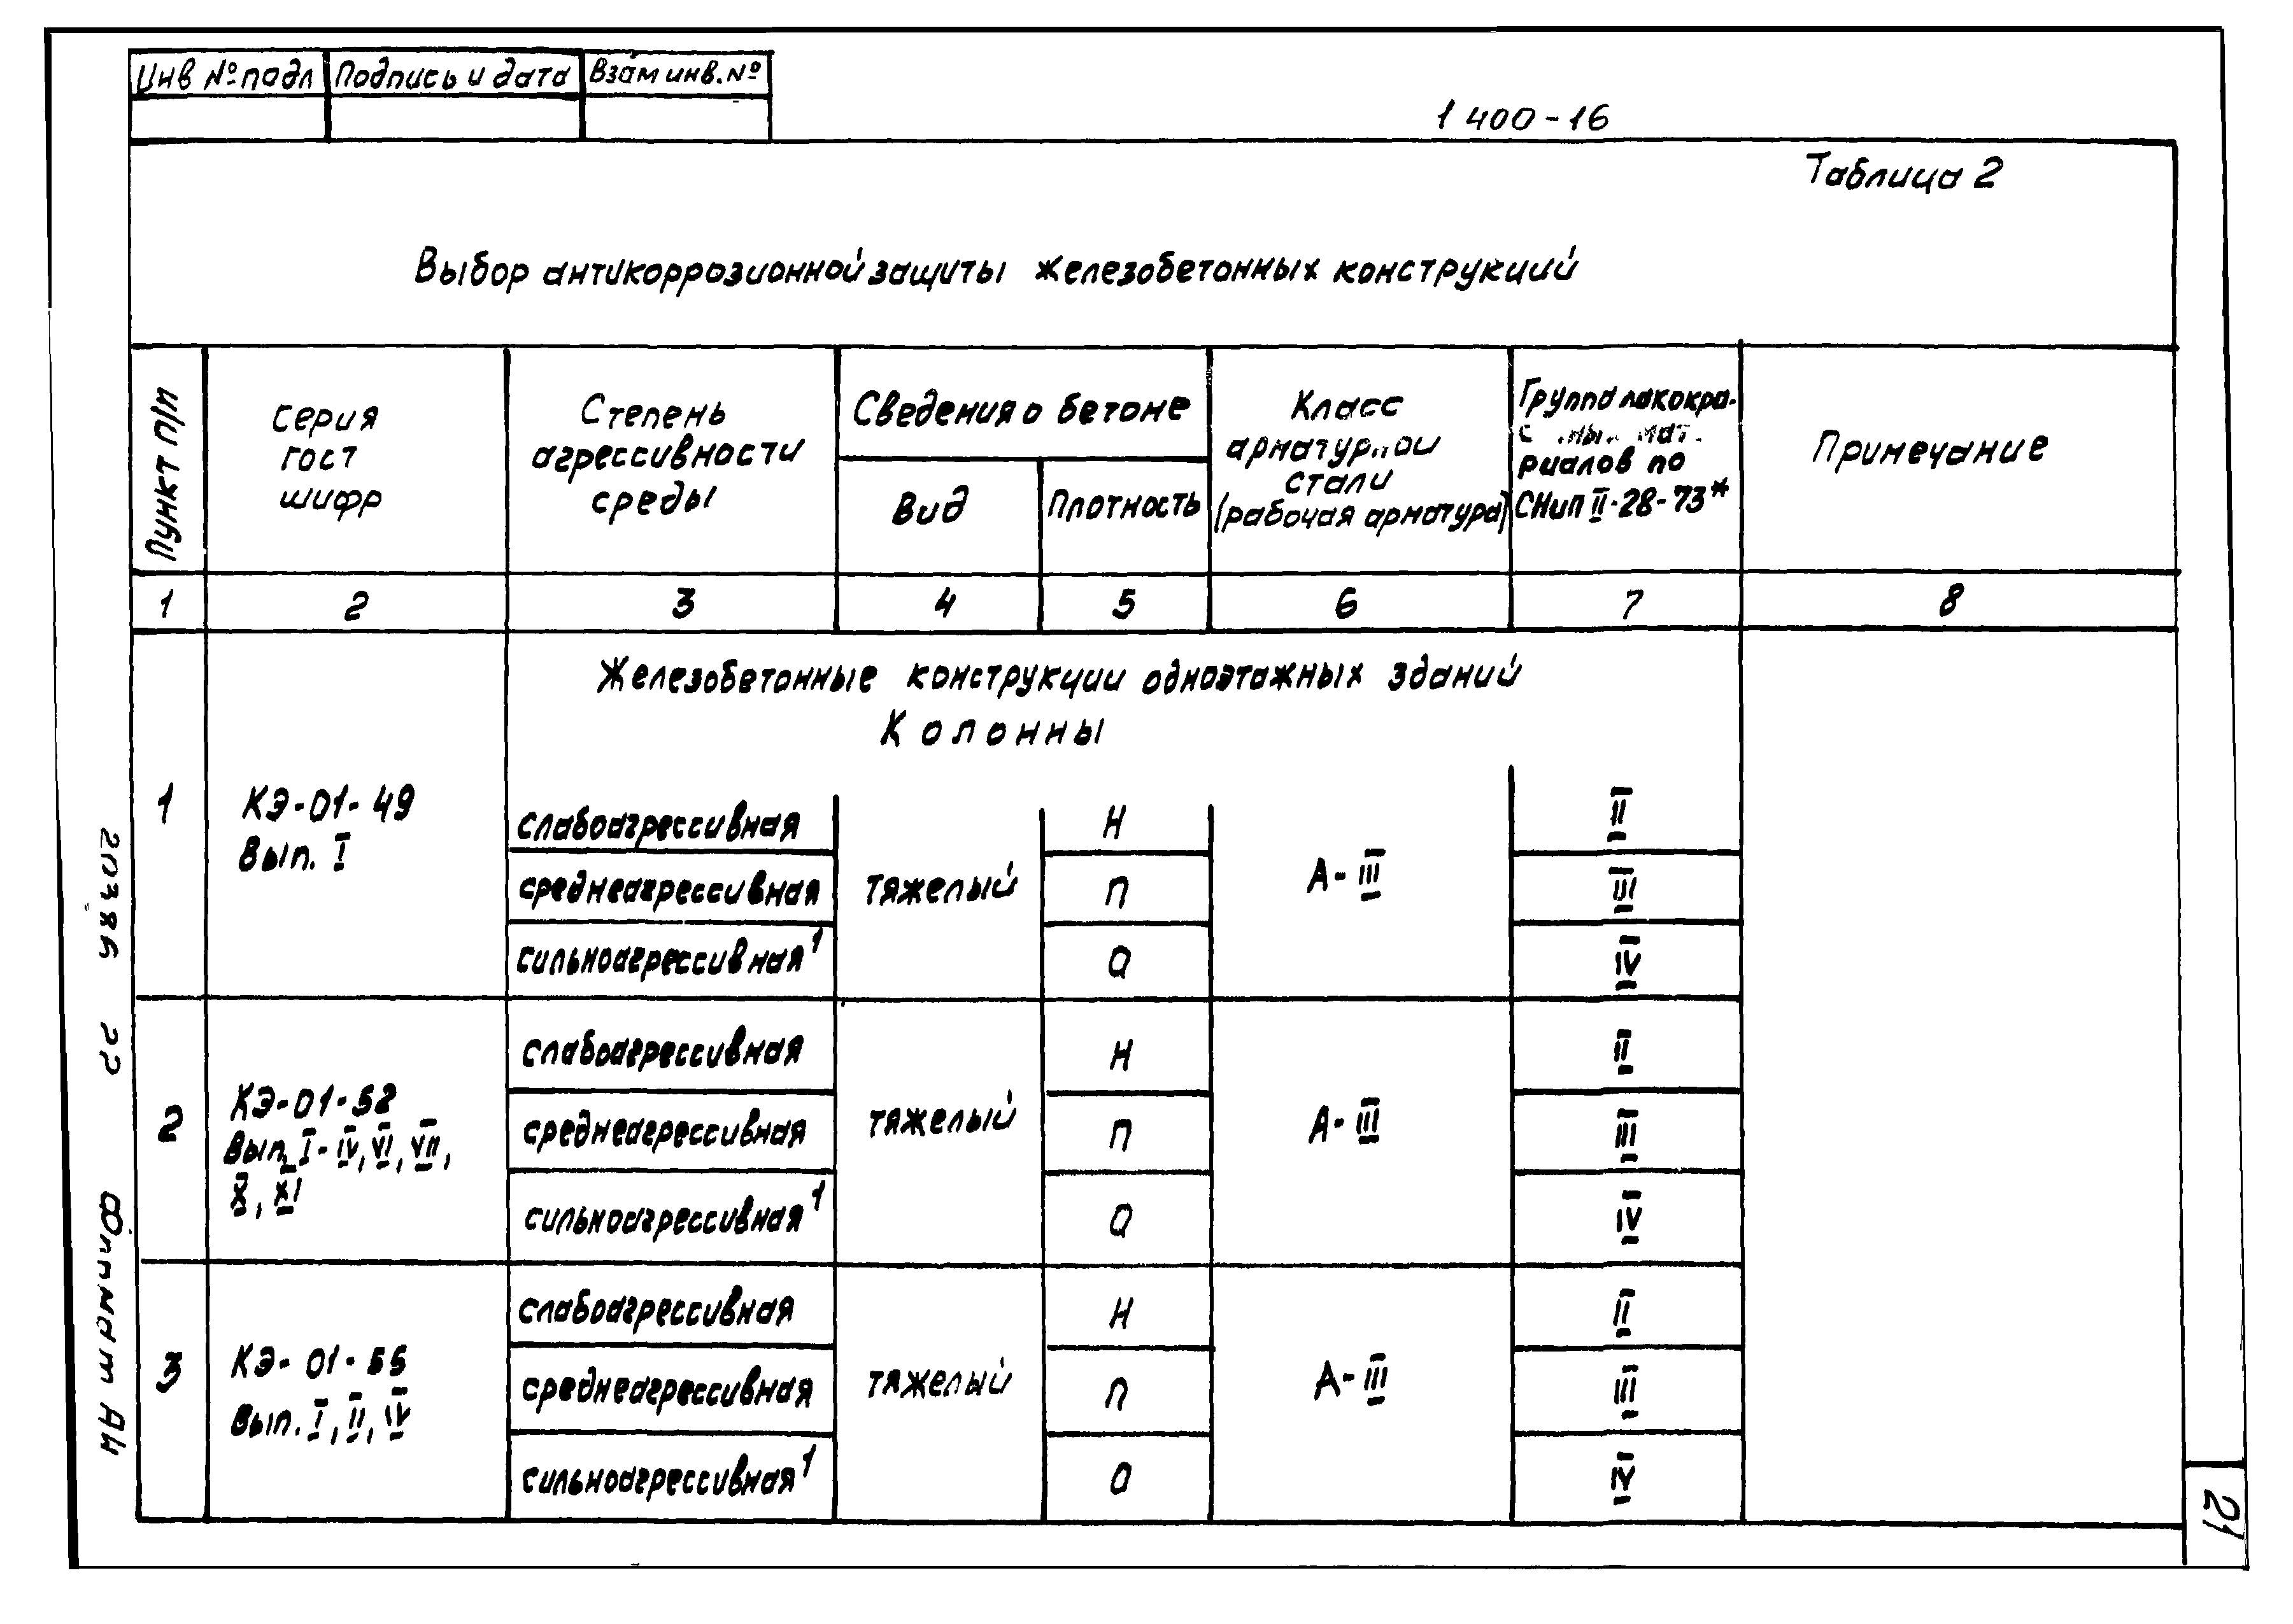 Инв № подл Подпись и дата Взам инв. №
1 400-16
Таблица 2
Выбор антикоррозионной защиты железобетонных конструкций
Пункт п/п
серия
гост
шифр
Степень
агрессивности
среды
Сведения о бетоне
Вид
Плотность
Класс
арматурной
стали
(рабочая арматура)
Группа лакокра-
риалов по
СНиП II-28-73*
Примечание
1 2 3 4 5 6 7 8
Железобетонные конструкции одноэтажных зданий
Колонны
1
КЭ-01-49
Вып. I
слабоагрессивная Н II
среднеагрессивная тяжелый П А-III III
сильноагрессивная¹ О IV
2
КЭ-01-52
Вып. I-IV, VI, VII,
X, XI
слабоагрессивная Н II
среднеагрессивная тяжелый П А-III III
сильноагрессивная¹ О IV
3
КЭ-01-55
Вып. I, II, IV
слабоагрессивная Н II
среднеагрессивная тяжелый П А-III III
сильноагрессивная¹ О IV
20786 22
Формат А4
21